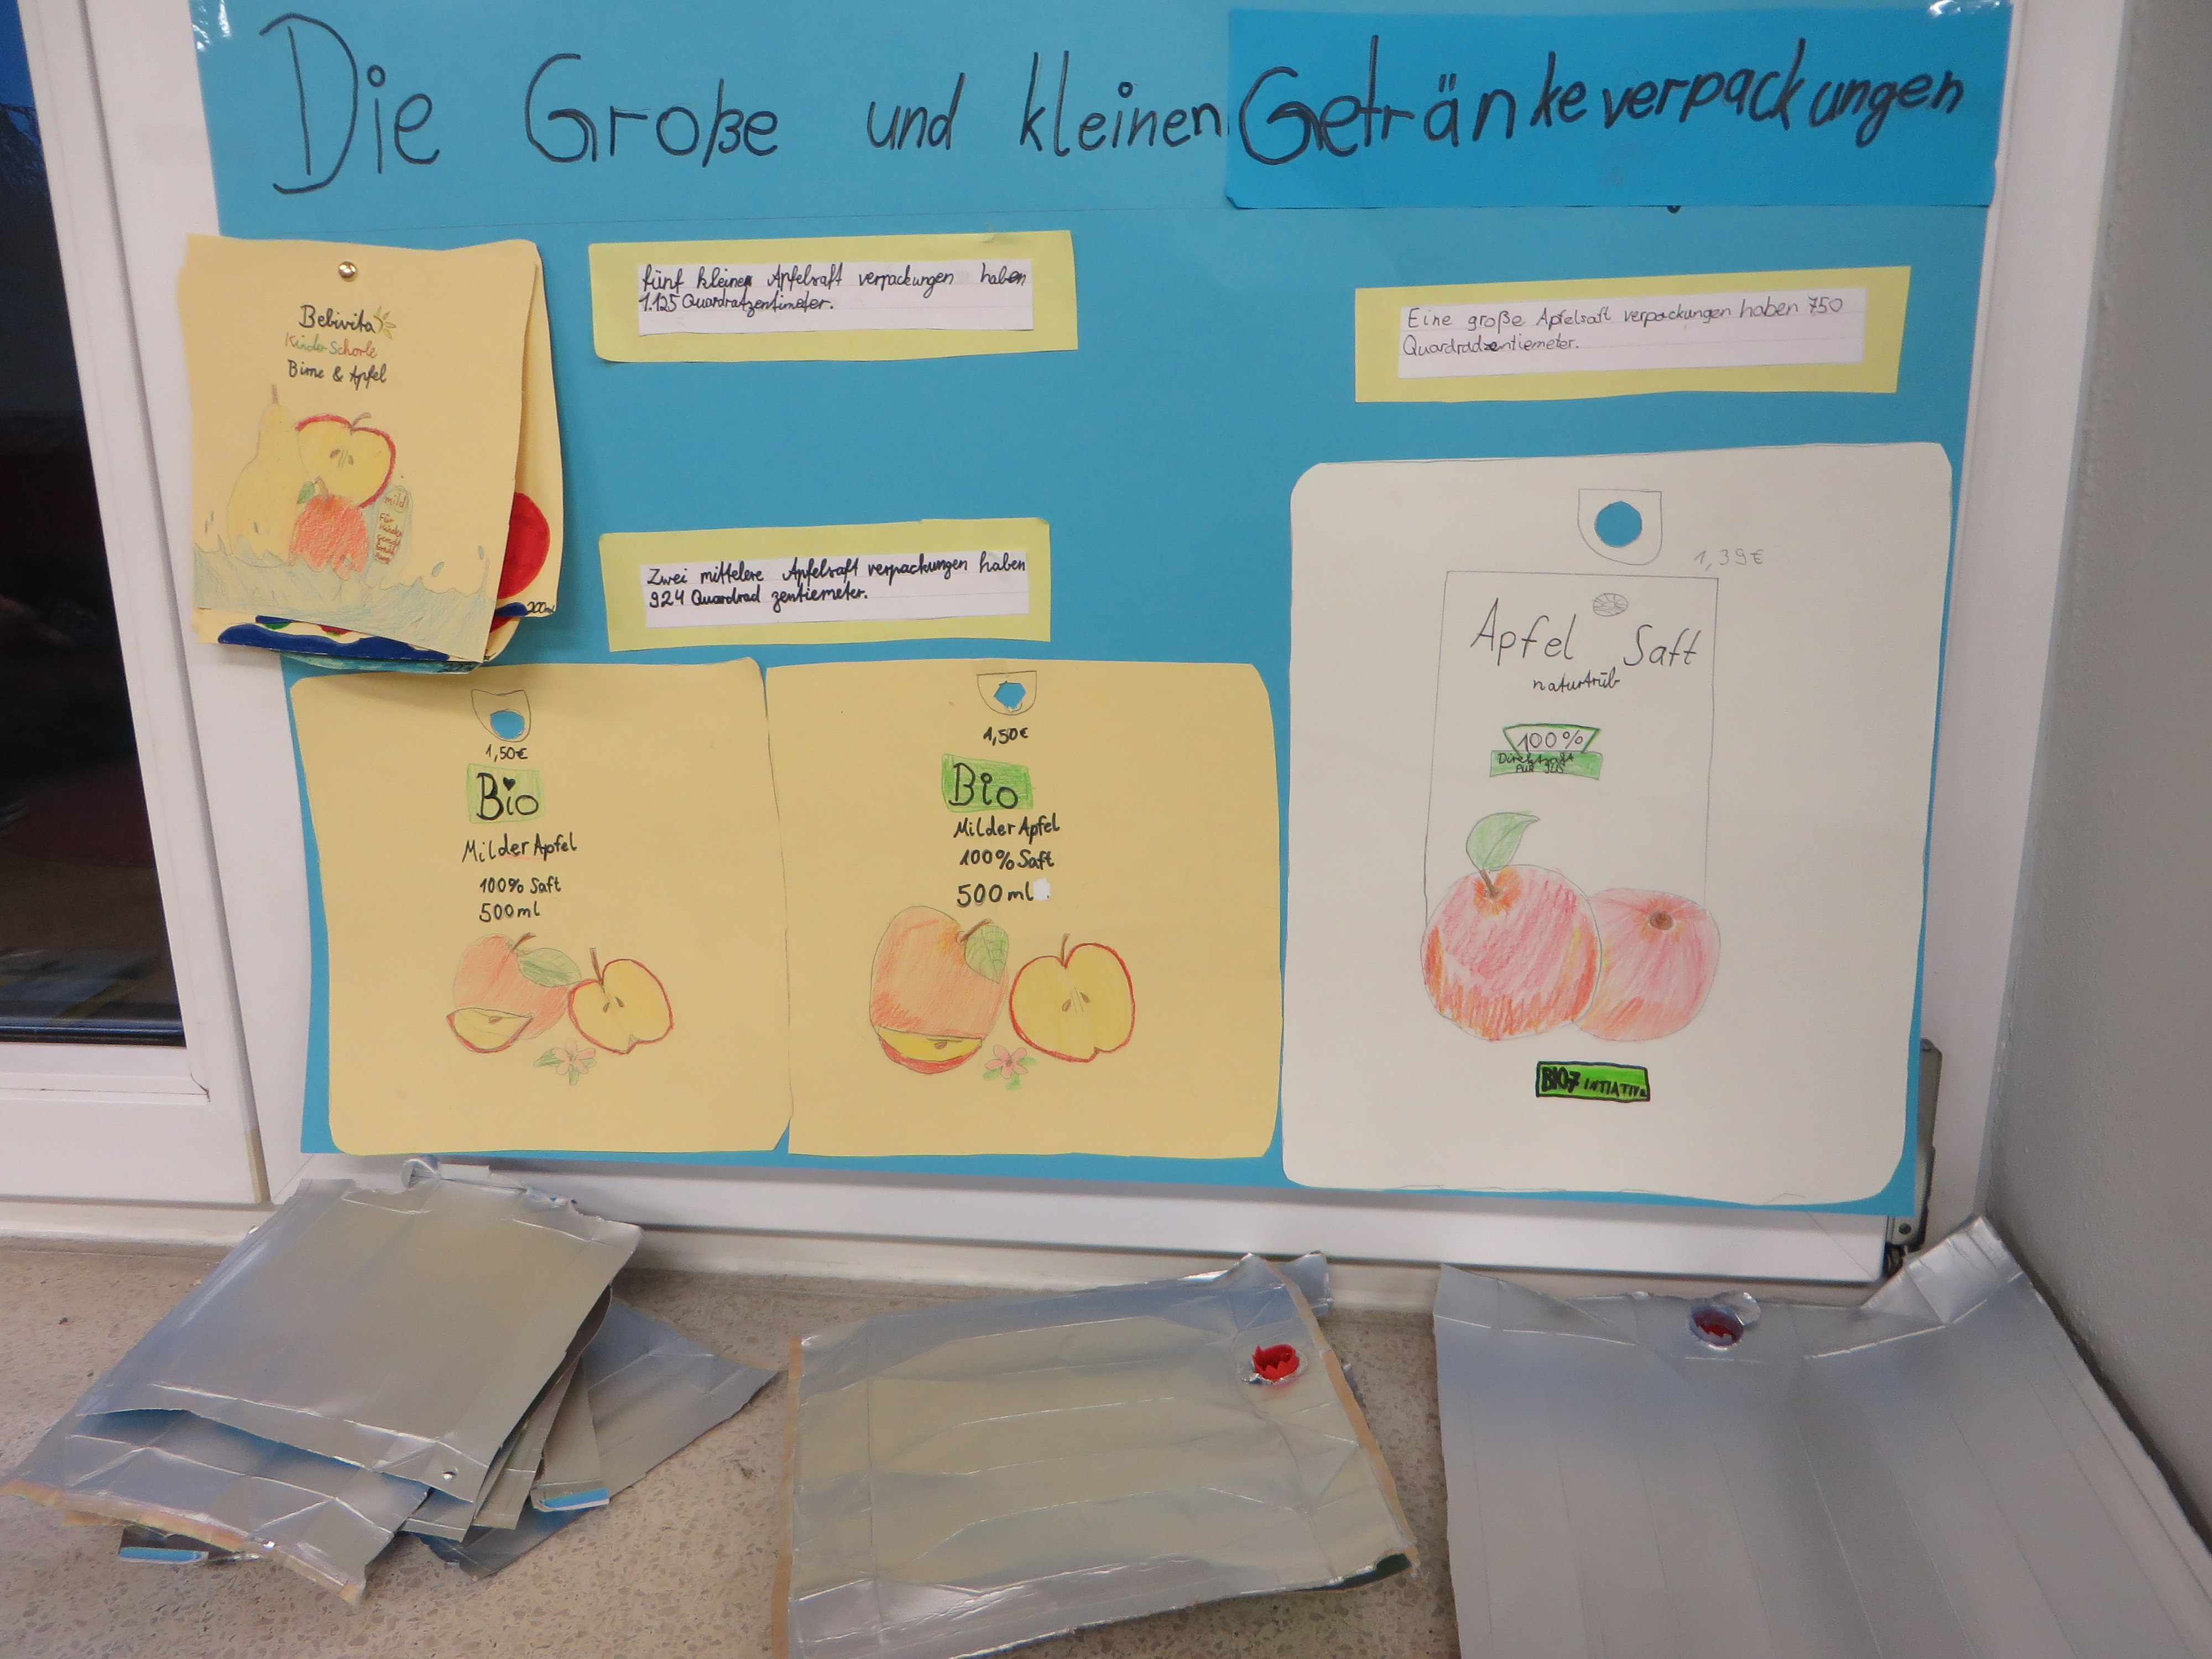 Die Große und kleinen Getränkeverpackungen
Bebivita
Kinder Schorle
Birne & Apfel
mild
Für
200ml
fünf kleinen Apfelsaft verpackungen haben
1.125 Quardratzentimeter.
Eine große Apfelsaft verpackungen haben 750
Quardradzentiemeter.
Zwei mittelere Apfelsaft verpackungen haben
924 Quardrad zentiemeter.
1,50€
Bio
Milder Apfel
100% Saft
500ml
1,50€
Bio
Milder Apfel
100% Saft
500ml
1,39€
Apfel Saft
naturtrüb
100%
Direktsaft
PUR JUS
BIO7 INTIATIVE